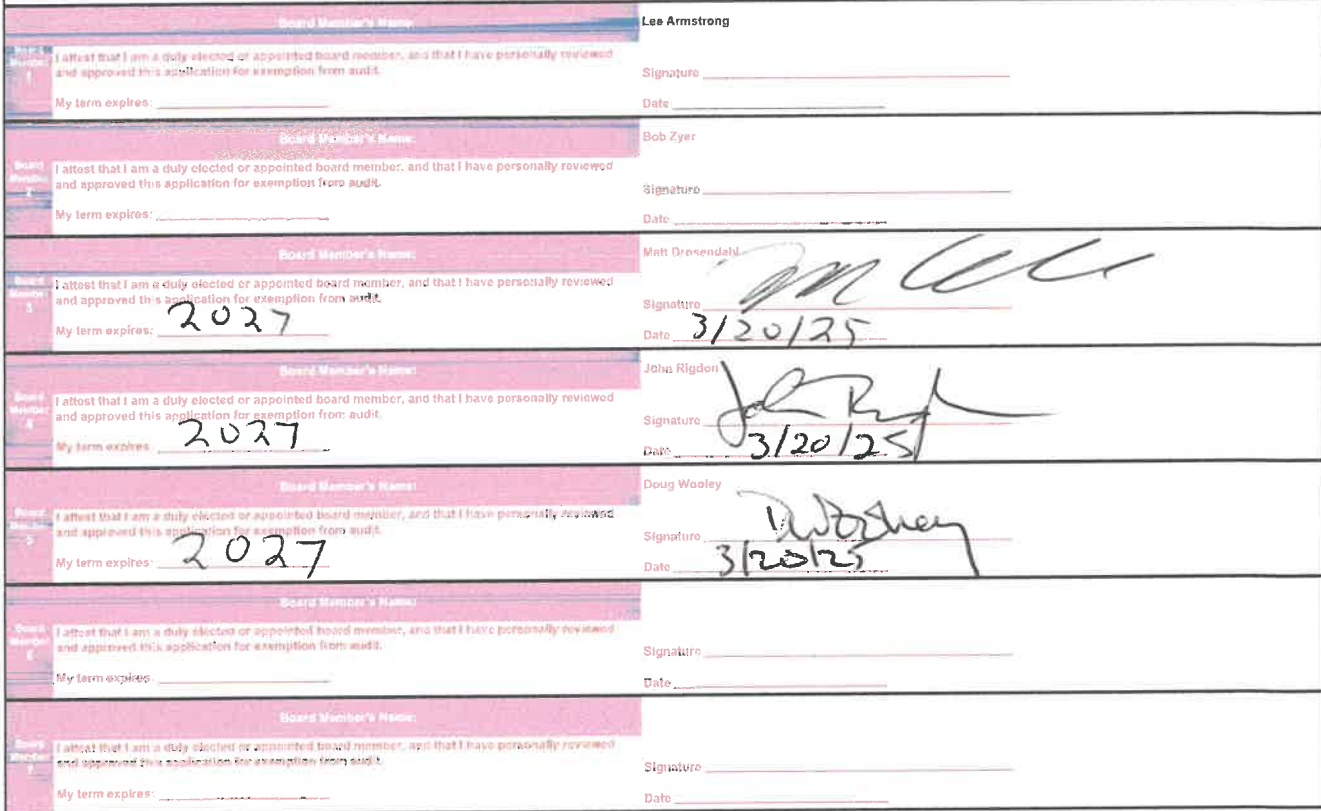 Board Member's Name:
Lee Armstrong
Board Member 1
I attest that I am a duly elected or appointed board member, and that I have personally reviewed
and approved this application for exemption from audit.
Signature
My term expires:
Date
Board Member's Name:
Bob Zyer
Board Member 2
I attest that I am a duly elected or appointed board member, and that I have personally reviewed
and approved this application for exemption from audit.
Signature
My term expires:
Date
Board Member's Name:
Matt Drosendahl
Board Member 3
I attest that I am a duly elected or appointed board member, and that I have personally reviewed
and approved this application for exemption from audit.
Signature
My term expires: 2027
Date 3/20/25
Board Member's Name:
John Rigdon
Board Member 4
I attest that I am a duly elected or appointed board member, and that I have personally reviewed
and approved this application for exemption from audit.
Signature
My term expires: 2027
Date 3/20/25
Board Member's Name:
Doug Wooley
Board Member 5
I attest that I am a duly elected or appointed board member, and that I have personally reviewed
and approved this application for exemption from audit.
Signature
My term expires: 2027
Date 3/20/25
Board Member's Name:
Board Member 6
I attest that I am a duly elected or appointed board member, and that I have personally reviewed
and approved this application for exemption from audit.
Signature
My term expires:
Date
Board Member's Name:
Board Member 7
I attest that I am a duly elected or appointed board member, and that I have personally reviewed
and approved this application for exemption from audit.
Signature
My term expires:
Date